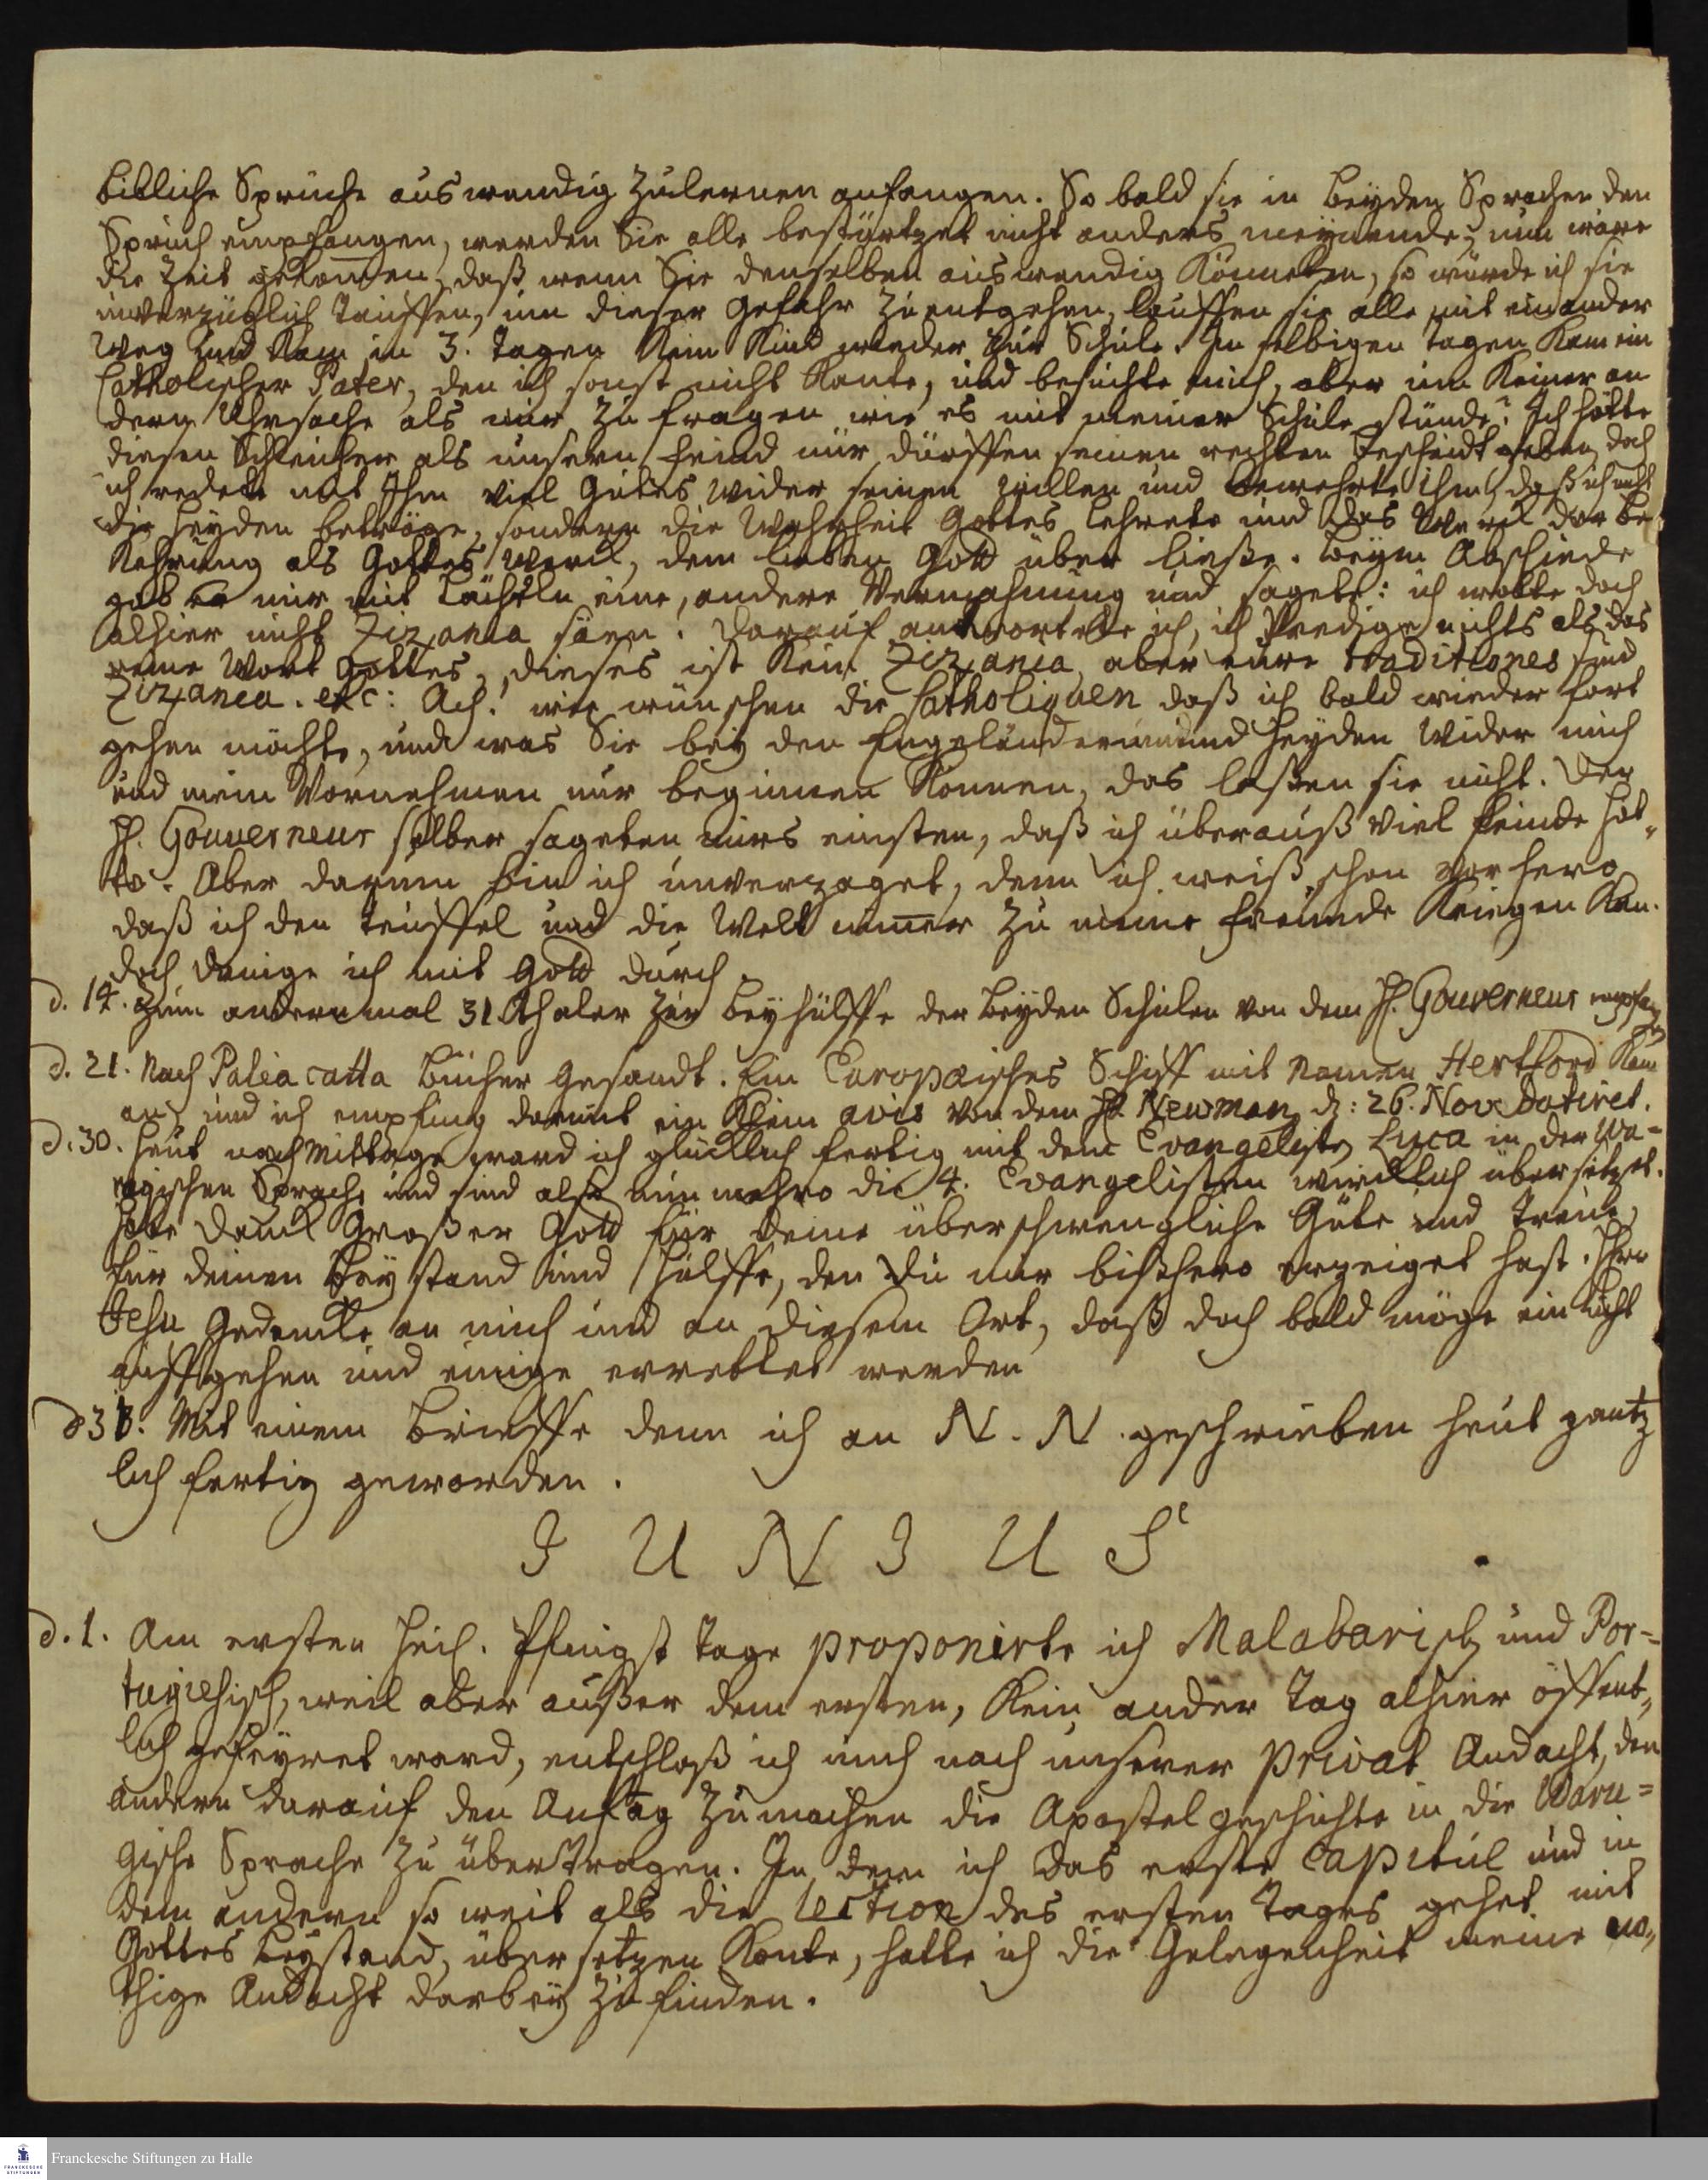 bibliche Sprüche auswendig zulernen anfangen. So bald sie in beyden Sprachen den
Spruch empfangen, werden Sie alle bestürtzet nicht anders meynende, nun wäre
die Zeit gekom̅en, daß wenn Sie denselben auswendig könneten, so würde ich sie
unverzüglich tauffen, um dieser gefahr zu entgehen, lauffen sie alle mit einander
Weg und kam in 3. tagen kein Kind wieder zur Schule. In selbigen tagen kam ein
Catholischer Pater, den ich sonst nicht kante, und besuchte mich, aber um keiner an
dern Uhrsache als mir zu fragen wie es mit meiner Schule stünde? Ich hätte
diesen Schleicher als unsern feind nur dürffen seinen rechten bescheidt geben, doch
ich redete mit Ihm viel gutes wider seinen willen und bewehrte ihm, daß ich nicht
die Heyden betröge, sondern die Wahrheit Gottes lehrete und das Werck der be
kehrung als Gottes Werck, dem lieben Gott über ließe. beym Abschiede
gab er mir mit lächeln eine, andere Vermahnung und sagete: ich wolte doch
alhier nicht Zizania säen! darauf antwortete ich, ich Predige nichts als das
reine Wort gottes, dieses ist kein Zizania, aber eure traditiones sind
Zizania. etc: Ach! wie wünschen die Catholiquen daß ich bald wieder fort
gehen möchte, und was Sie bey den Engeländern und Heyden wider mich
und mein Vornehmen nur beginnen können, das laßen sie nicht. Der
H. Gouverneur selber sageten mirs einsten, daß ich überauß viel feinde hät„
te. Aber darum bin ich unverzaget, denn ich weiß schon vorhero
daß ich den teuffel und die Welt nim̅er zu meine freunde kriegen kan.
doch dringe ich mit Gott durch.
d. 14. Zum andernmal 31 thaler zur beyhülffe der beyden Schulen von dem H. Gouverneur empfangen
d. 21. Nach Paleacatta bücher gesandt. Ein Europæisches Schiff mit namen Hertford kam
an, und ich empfing darmit ein klein avis von dem H. Newman d: 26. Nov. datiret.
d. 30. heut nach Mittage ward ich glücklich fertig mit dem Evangelisten Luca in der Wa=
rugischen Sprache und sind also nun mehro die 4. Evangelisten wircklich übersetzet.
Habe danck großer Gott für deine überschwengliche Güte und treue,
für deinen beystand und hülffe, den du mir bißhero erzeiget hast. Herr
Jesu gedencke an mich und an diesem Ort, daß doch bald möge ein licht
auffgehen und einige errettet werden
d 31. Mit einem brieffe denn ich an N. N. geschrieben heut gantz
lich fertig geworden.
JUNIUS
d. 1. Am ersten heil. Pfingst tage proponirte ich Malabarisch und Por=
tugiesisch, weil aber außer dem ersten, kein ander tag alhier öffent„
lich gefeyret ward, entschloß ich mich nach unserer privat Andacht, den
andern darauf den Anfang zu machen die Apostelgeschichte in die Waru=
gische Sprache zu übertragen. In dem ich das erste Capitul und in
dem andern so weit als die lection des ersten tages gehet mit
Gottes beystand, übersetzen konte, hatte ich die Gelegenheit meine nö„
thige Andacht darbey zu finden.
Franckesche Stiftungen zu Halle
FRANCKESCHE
STIFTUNGEN